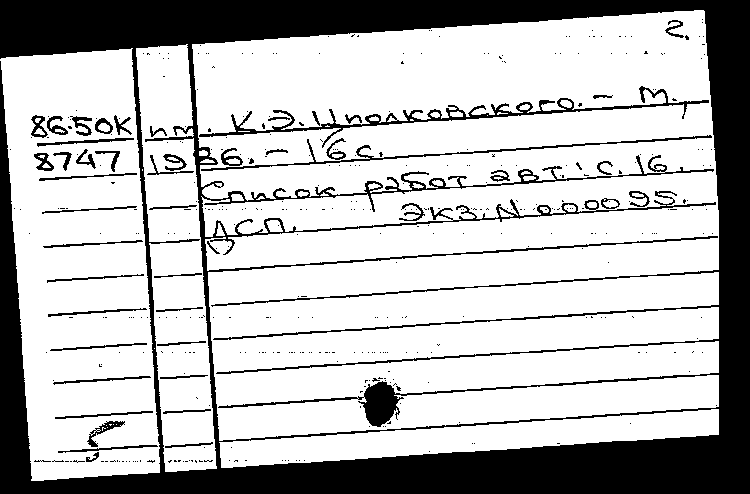 2.
86.50К им. К.Э.Циолковского. – М.,
8747 1986. – 16 с.
Список работ авт.: с. 16.
ДСП. Экз. N 000095.